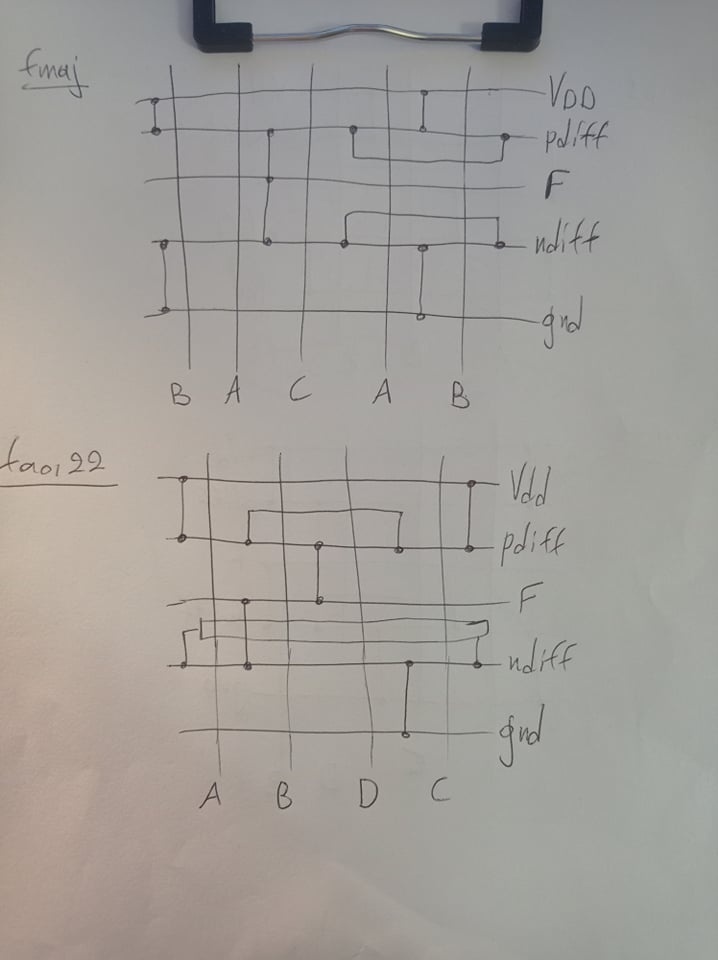 fmaj
VDD
pdiff
F
ndiff
gnd
B A C A B
faoi22
Vdd
pdiff
F
ndiff
gnd
A B D C